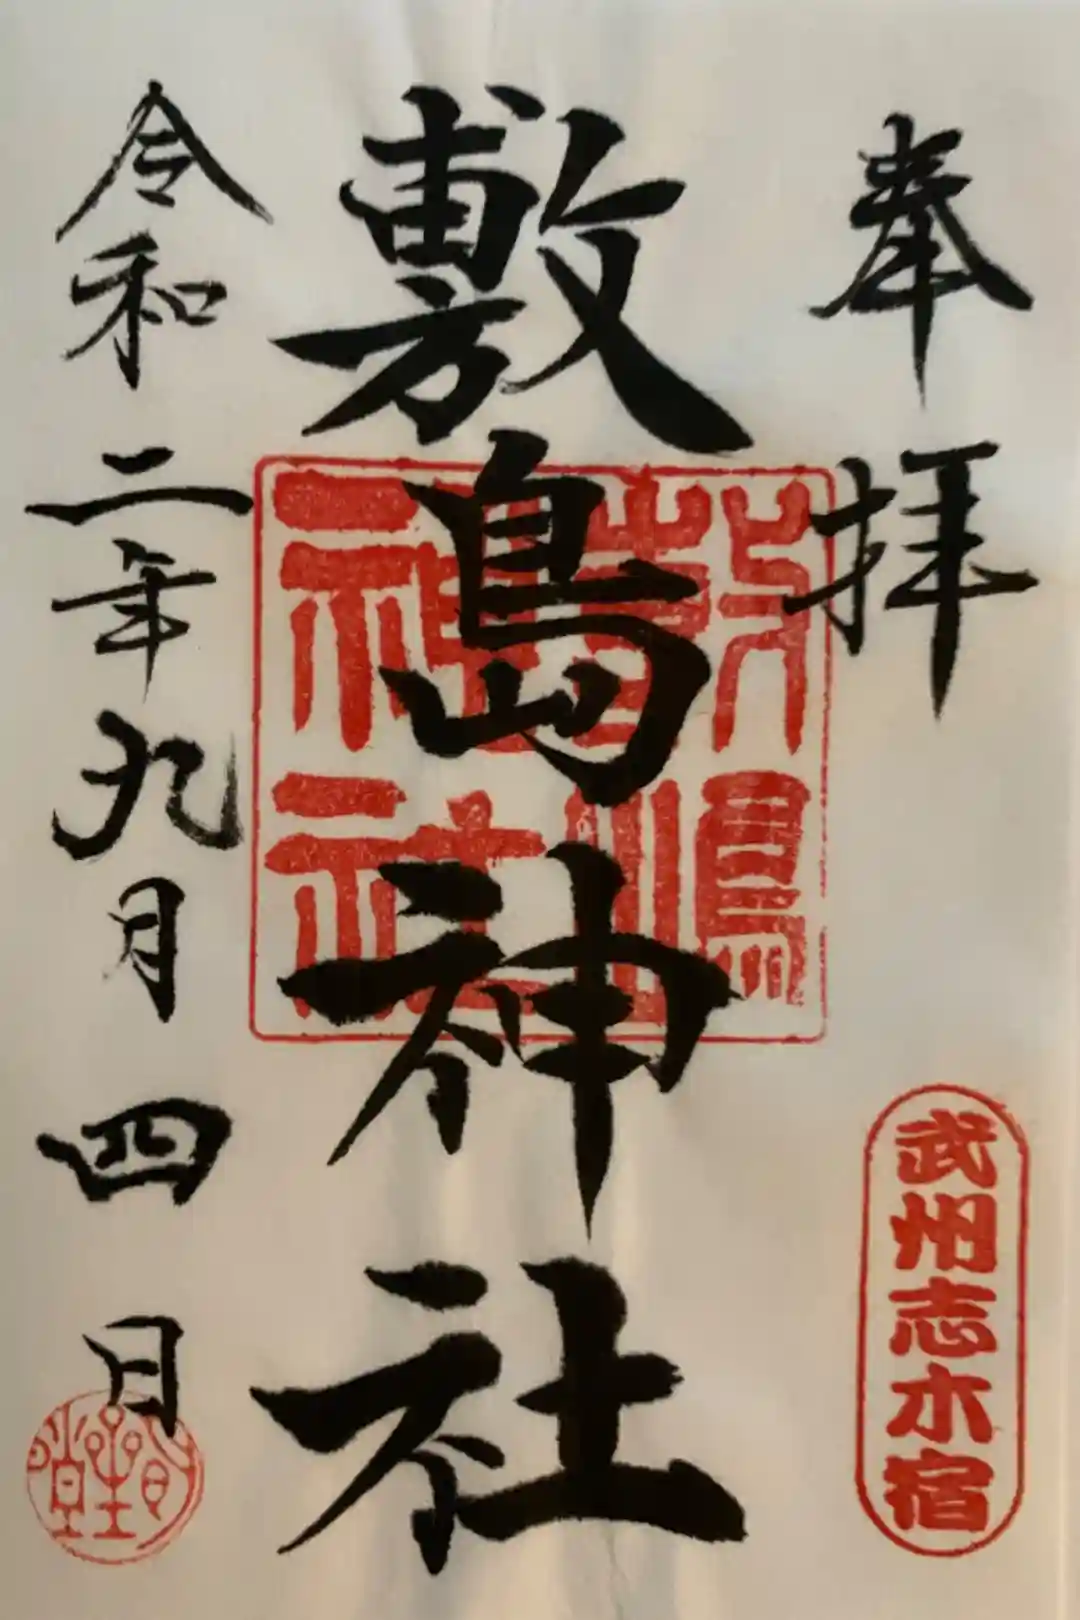 奉拝
武州志木宿
敷島神社
敷嶋神社
令和二年九月四日